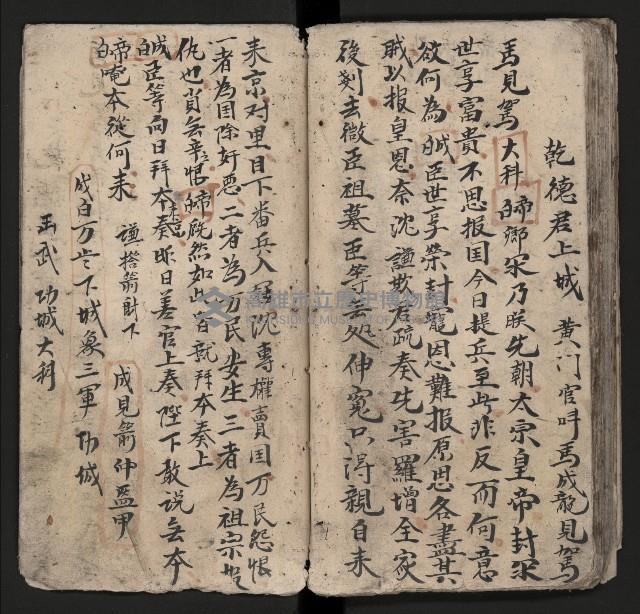 乾德君上城 黄门官叫馬成龍見駕
馬見駕 大科 帝 鄉家乃朕先朝太宗皇帝封家
世享富貴不思报国今日提兵至此非反而何意
欲何為 成 臣世享榮封寵恩難报原思各盡其
賊以报皇恩奈沈謙欺君疏奏屯害羅增全家
後剝去微臣祖墓臣等無処伸冤只淂親自来
来京对里目下番兵入 沈專權賣国万民怨恨
一者為国除奸惡二者為万民安生三者為祖宗
仇也 無 恨 帝 既然如此 就拜本奏上
成 臣等向日拜本奏 昨日差官上奏陛下敢說無本
帝 白 唵本從何来 謙搭箭射下 成見箭仲盔甲
成白万岁下城象三軍功城
馬武 功城大科
高雄市立歷史博物館
KAOHSIUNG MUSEUM OF HISTORY